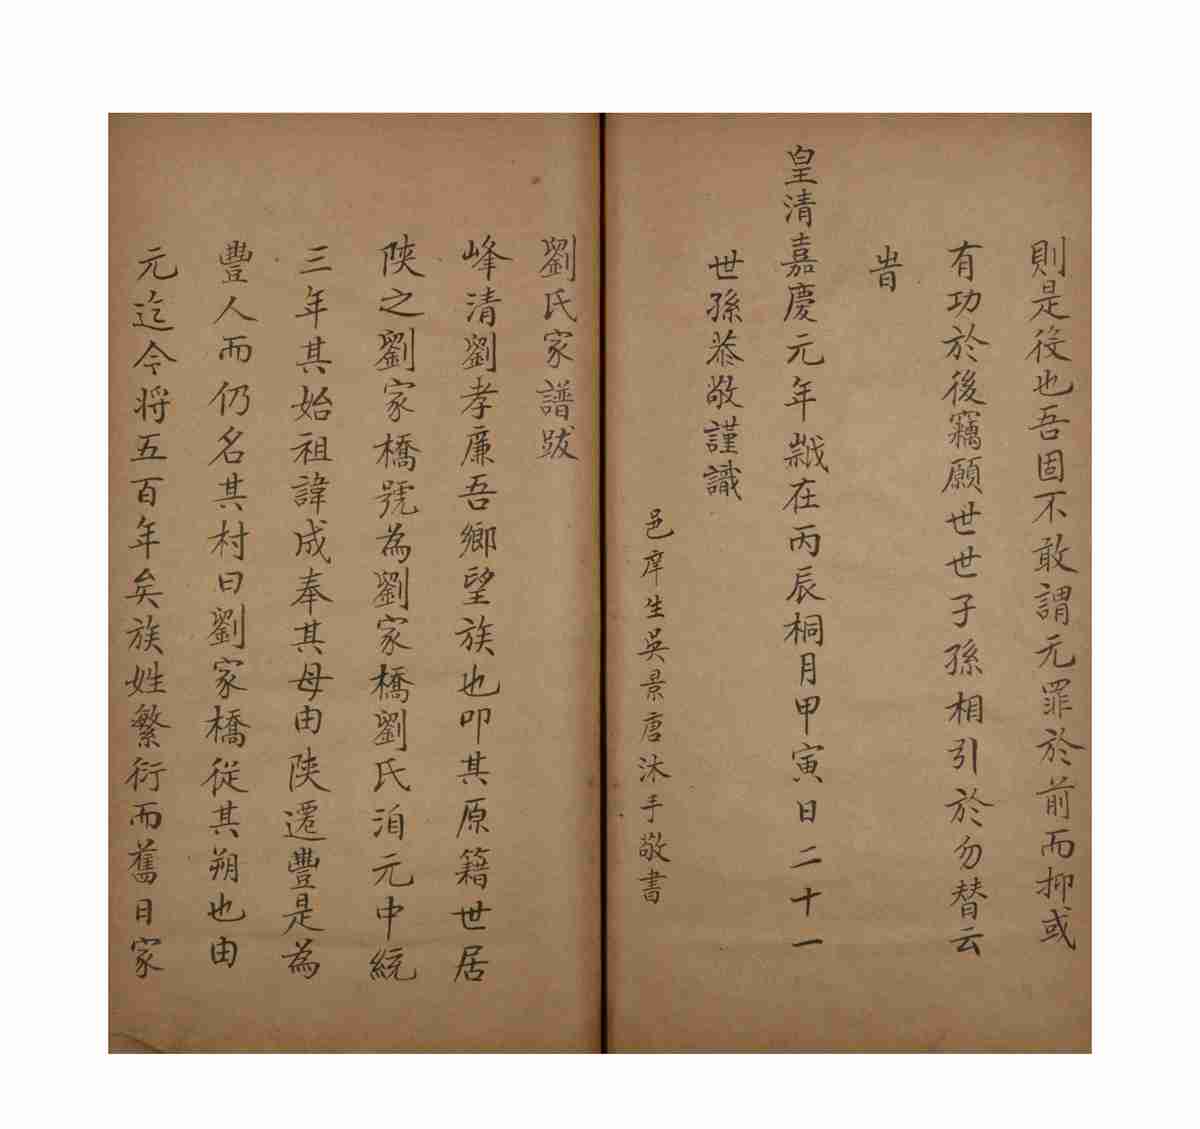 則是役也吾固不敢謂无罪於前而抑或
有功於後竊願世世子孫相引於勿替云
旹
皇清嘉慶元年歲在丙辰桐月甲寅日二十一
世孫恭敬謹識
邑庠生吳景唐沐手敬書
劉氏家譜跋
峰清劉孝廉吾鄉望族也叩其原籍世居
陝之劉家橋號為劉家橋劉氏洎元中統
三年其始祖諱成奉其母由陝遷豐是為
豐人而仍名其村曰劉家橋從其朔也由
元迄今將五百年矣族姓繁衍而舊日家